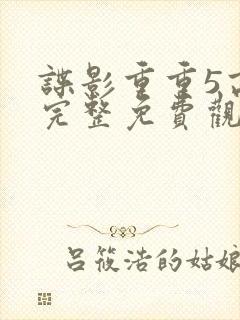 諜影重重5高
完整免費觀
呂筱浩的姑娘